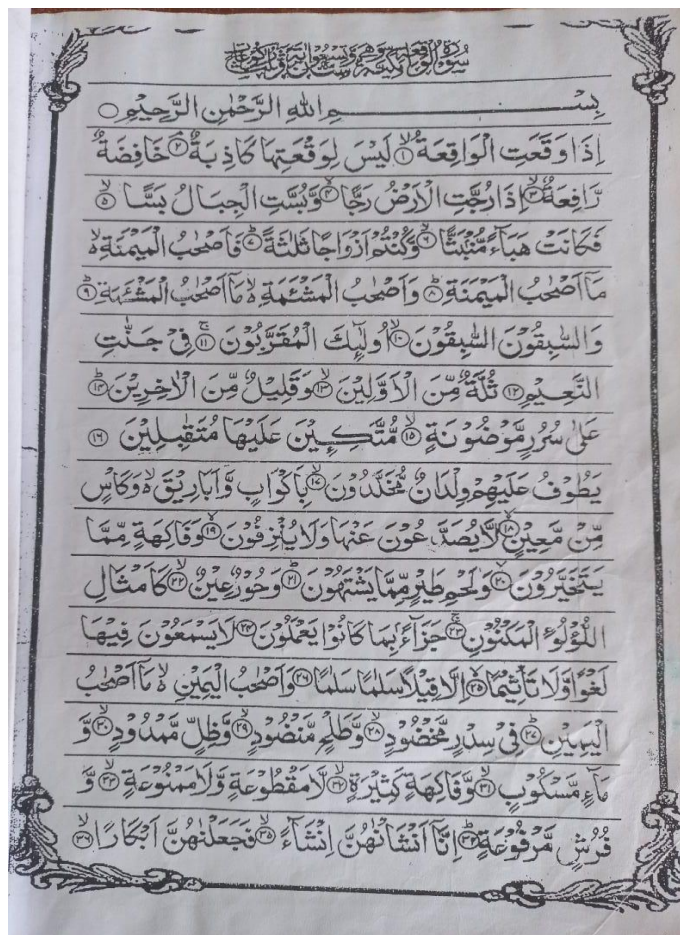 سُوْرَةُ الْوَاقِعَةِ مَكِّيَّةٌ وَّهِيَ سِتٌّ وَّتِسْعُوْنَ اٰيَةً وَّثَلٰثُ رُكُوْعَاتٍ
بِسْمِ اللّٰهِ الرَّحْمٰنِ الرَّحِيْمِ ○
اِذَا وَقَعَتِ الْوَاقِعَةُ ۙ﴿۱﴾ لَيْسَ لِوَقْعَتِهَا كَاذِبَةٌ ۘ﴿۲﴾ خَافِضَةٌ
رَّافِعَةٌ ۙ﴿۳﴾ اِذَا رُجَّتِ الْاَرْضُ رَجًّا ۙ﴿۴﴾ وَّبُسَّتِ الْجِبَالُ بَسًّا ۙ﴿۵﴾
فَكَانَتْ هَبَآءً مُّنْۢبَثًّا ۙ﴿۶﴾ وَّكُنْتُمْ اَزْوَاجًا ثَلٰثَةً ؕ﴿۷﴾ فَاَصْحٰبُ الْمَيْمَنَةِ ۙ
مَاۤ اَصْحٰبُ الْمَيْمَنَةِ ؕ﴿۸﴾ وَاَصْحٰبُ الْمَشْـَٔمَةِ ۙ مَاۤ اَصْحٰبُ الْمَشْـَٔمَةِ ؕ﴿۹﴾
وَالسّٰبِقُوْنَ السّٰبِقُوْنَ ۙ﴿۱۰﴾ اُولٰٓئِكَ الْمُقَرَّبُوْنَ ۚ﴿۱۱﴾ فِيْ جَنّٰتِ
النَّعِيْمِ ﴿۱۲﴾ ثُلَّةٌ مِّنَ الْاَوَّلِيْنَ ۙ﴿۱۳﴾ وَقَلِيْلٌ مِّنَ الْاٰخِرِيْنَ ؕ﴿۱۴﴾
عَلٰى سُرُرٍ مَّوْضُوْنَةٍ ۙ﴿۱۵﴾ مُّتَّكِـِٕيْنَ عَلَيْهَا مُتَقٰبِلِيْنَ ﴿۱۶﴾
يَطُوْفُ عَلَيْهِمْ وِلْدَانٌ مُّخَلَّدُوْنَ ۙ﴿۱۷﴾ بِاَكْوَابٍ وَّاَبَارِيْقَ ۙ وَكَاْسٍ
مِّنْ مَّعِيْنٍ ۙ﴿۱۸﴾ لَّا يُصَدَّعُوْنَ عَنْهَا وَلَا يُنْزِفُوْنَ ۙ﴿۱۹﴾ وَفَاكِهَةٍ مِّمَّا
يَتَخَيَّرُوْنَ ۙ﴿۲۰﴾ وَلَحْمِ طَيْرٍ مِّمَّا يَشْتَهُوْنَ ؕ﴿۲۱﴾ وَحُوْرٌ عِيْنٌ ۙ﴿۲۲﴾ كَاَمْثَالِ
اللُّؤْلُؤَ الْمَكْنُوْنِ ۚ﴿۲۳﴾ جَزَآءًۢ بِمَا كَانُوْا يَعْمَلُوْنَ ﴿۲۴﴾ لَا يَسْمَعُوْنَ فِيْهَا
لَغْوًا وَّلَا تَاْثِيْمًا ۙ﴿۲۵﴾ اِلَّا قِيْلًا سَلٰمًا سَلٰمًا ﴿۲۶﴾ وَاَصْحٰبُ الْيَمِيْنِ ۙ مَاۤ اَصْحٰبُ
الْيَمِيْنِ ؕ﴿۲۷﴾ فِيْ سِدْرٍ مَّخْضُوْدٍ ۙ﴿۲۸﴾ وَّطَلْحٍ مَّنْضُوْدٍ ۙ﴿۲۹﴾ وَّظِلٍّ مَّمْدُوْدٍ ۙ﴿۳۰﴾ وَّ
مَآءٍ مَّسْكُوْبٍ ۙ﴿۳۱﴾ وَّفَاكِهَةٍ كَثِيْرَةٍ ۙ﴿۳۲﴾ لَّا مَقْطُوْعَةٍ وَّلَا مَمْنُوْعَةٍ ۙ﴿۳۳﴾ وَّ
فُرُشٍ مَّرْفُوْعَةٍ ؕ﴿۳۴﴾ اِنَّاۤ اَنْشَاْنٰهُنَّ اِنْشَآءً ۙ﴿۳۵﴾ فَجَعَلْنٰهُنَّ اَبْكَارًا ۙ﴿۳۶﴾